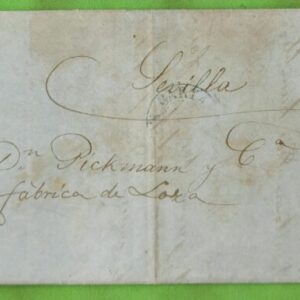 Sevilla
Dn Pickmann y Ca
fábrica de Loza